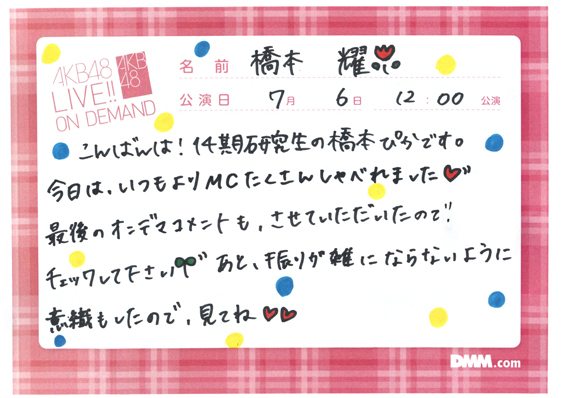 AKB48
LIVE!!
ON DEMAND
AKB
48
名 前 橋本 耀
公演日 7月 6日 12:00 公演
こんばんは! 14期研究生の橋本ひかりです。
今日は、いつもよりMCたくさんしゃべれました
最後のオンデマコメントも、させていただいたので!!
チェックして下さい
あと、振りが雑にならないように
意識もしたので、見てね
DMM.com